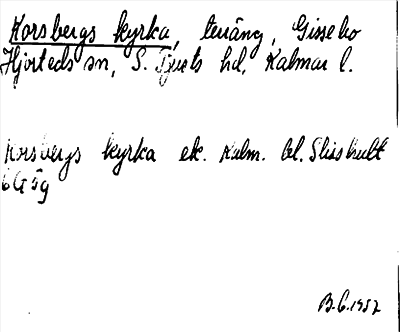 Korsbergs kyrka, terräng, Gissebo
Hjorteds sn, S. Tjusts hd, Kalmar l.
Korsbergs kyrka ek. Kalm. bl. Slisshult
6G5g
B.G. 1957